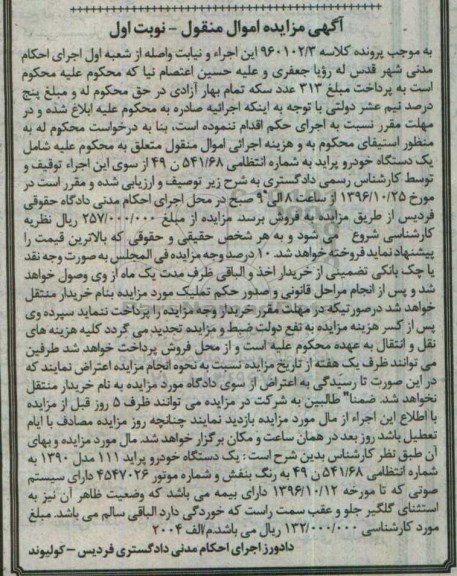 آگهی مزایده اموال منقول - نوبت اول
به موجب پرونده کلاسه ۹۶۰۱۰۲/۳ این اجراء و نیابت واصله از شعبه اول اجرای احکام
مدنی شهر قدس له رؤیا جعفری و علیه حسین اعتصام نیا که محکوم علیه محکوم
است به پرداخت مبلغ ۳۱۳ عدد سکه تمام بهار آزادی در حق محکوم له و مبلغ پنج
درصد نیم عشر دولتی با توجه به اینکه اجرائیه صادره به محکوم علیه ابلاغ شده و در
مهلت مقرر نسبت به اجرای حکم اقدام ننموده است، بنا به درخواست محکوم له به
منظور استیفای محکوم به و هزینه اجرائی اموال منقول متعلق به محکوم علیه شامل
یک دستگاه خودرو پراید به شماره انتظامی ۵۴۱/۶۸ ن ۴۹ از سوی این اجراء توقیف و
توسط کارشناس رسمی دادگستری به شرح زیر توصیف و ارزیابی شده و مقرر است در
مورخ ۱۳۹۶/۱۰/۲۵ از ساعت ۸ الی ۹ صبح در محل اجرای احکام مدنی دادگاه حقوقی
فردیس از طریق مزایده به فروش برسد. مزایده از مبلغ ۲۵۷/۰۰۰/۰۰۰ ریال نظریه
کارشناسی شروع می شود و به هر شخص حقیقی و حقوقی که بالاترین قیمت را
پیشنهاد نماید فروخته خواهد شد. ۱۰ درصد وجه مزایده فی المجلس به صورت وجه نقد
یا چک بانکی تضمینی از خریدار اخذ و الباقی ظرف مدت یک ماه از وی وصول خواهد
شد و پس از انجام مراحل قانونی و صدور حکم تملیک مورد مزایده بنام خریدار منتقل
خواهد شد درصورتیکه در مهلت مقرر خریدار وجه مزایده را پرداخت ننماید سپرده وی
پس از کسر هزینه مزایده به نفع دولت ضبط و مزایده تجدید می گردد کلیه هزینه های
نقل و انتقال به عهده محکوم علیه است و از محل فروش پرداخت خواهد شد طرفین
می توانند ظرف یک هفته از تاریخ مزایده نسبت به نحوه انجام مزایده اعتراض نمایند که
در این صورت تا رسیدگی به اعتراض از سوی دادگاه مورد مزایده به نام خریدار منتقل
نخواهد شد. ضمنا" طالبین به شرکت در مزایده می توانند ظرف ۵ روز قبل از مزایده
با اطلاع این اجراء از مال مورد مزایده بازدید نمایند چنانچه روز مزایده مصادف با ایام
تعطیل باشد روز بعد در همان ساعت و مکان برگزار خواهد شد. مال مورد مزایده و بهای
آن طبق نظر کارشناس بدین شرح است: یک دستگاه خودرو پراید ۱۱۱ مدل ۱۳۹۰ به
شماره انتظامی ۵۴۱/۶۸ ن ۴۹ به رنگ بنفش و شماره موتور ۴۵۴۷۰۲۶ دارای سیستم
صوتی که تا مورخه ۱۳۹۶/۱۰/۱۲ دارای بیمه می باشد که وضعیت ظاهر آن نیز به
استثنای گلگیر جلو و عقب سمت راست که خوردگی دارد الباقی سالم می باشد. مبلغ
مورد کارشناسی ۱۳۲/۰۰۰/۰۰۰ ریال می باشد.م/الف ۲۰۰۴
دادورز اجرای احکام مدنی دادگستری فردیس - کولیوند